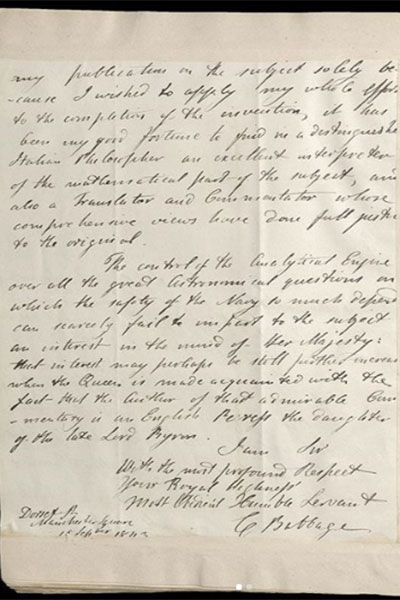 my publication on the subject solely be-
-cause I wished to apply my whole effort
to the completion of the invention, it has
been my good fortune to find in a distinguishe
Italian Philosopher an excellent interpreter
of the mathematical part of the subject, and
also a translator and Commentator whose
comprehensive views have done full justice
to the original.
The control of the Analytical Engine
over all the great Astronomical questions on
which the safety of the Navy so much depends
can scarcely fail to impart to the subject
an interest in the mind of Her Majesty:
that interest may perhaps be still further increase
when the Queen is made acquainted with the
fact that the Author of that admirable Com
-mentary is an English Peeress the daughter
of the late Lord Byron.
I am Sir
With the most profound Respect
Your Royal Highness'
Most Obedient Humble Servant
C Babbage
Dorset St
Manchester Square
Sept 1843